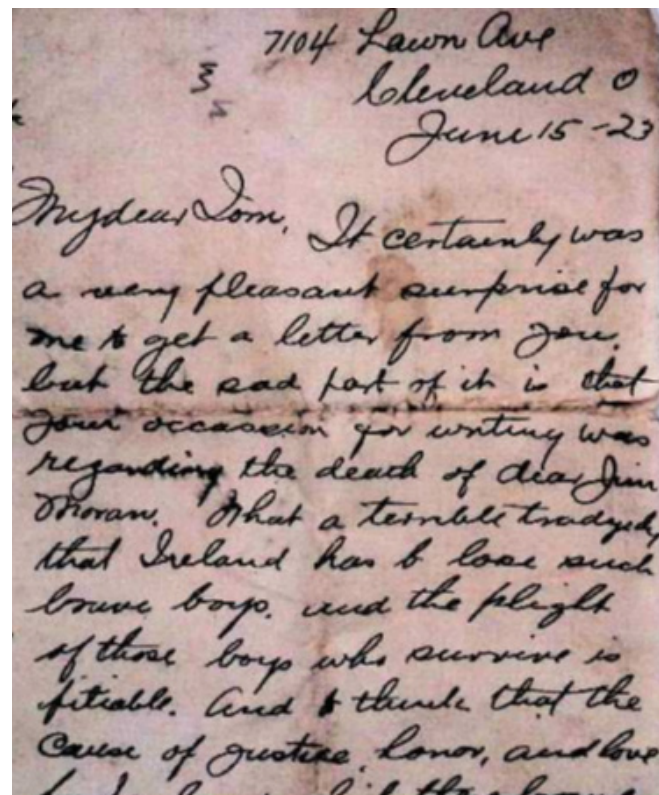 7104 Lawn Ave
Cleveland O
June 15 - 23
My dear Tom, It certainly was
a very pleasant surprise for
me to get a letter from you.
but the sad part of it is that
your occassion for writing was
regarding the death of dear Jim
Moran. What a terrible tradgedy
that Ireland has to lose such
brave boys. and the plight
of those boys who survive is
pitiable. And to think that the
cause of justice, honor, and love